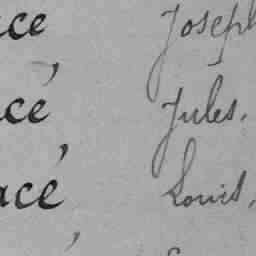 ace Joseph
acé Jules.
acé Louis,